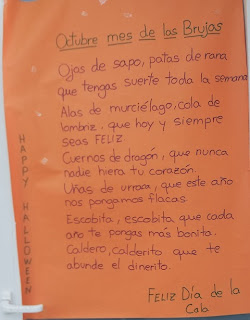 Octubre mes de las Brujas
Ojos de sapo, patas de rana
que tengas suerte toda la semana
Alas de murciélago, cola de
lombriz, que hoy y siempre
seas FELIZ
Cuernos de dragón, que nunca
nadie hiera tu corazón.
Uñas de urraa, que este año
nos pongamos flacas
Escobita, escobita que cada
año te pongas más bonita.
Caldero, calderito que te
abunde el dinerito.
FELIZ Día de la
HAPPY HALLOWEEN